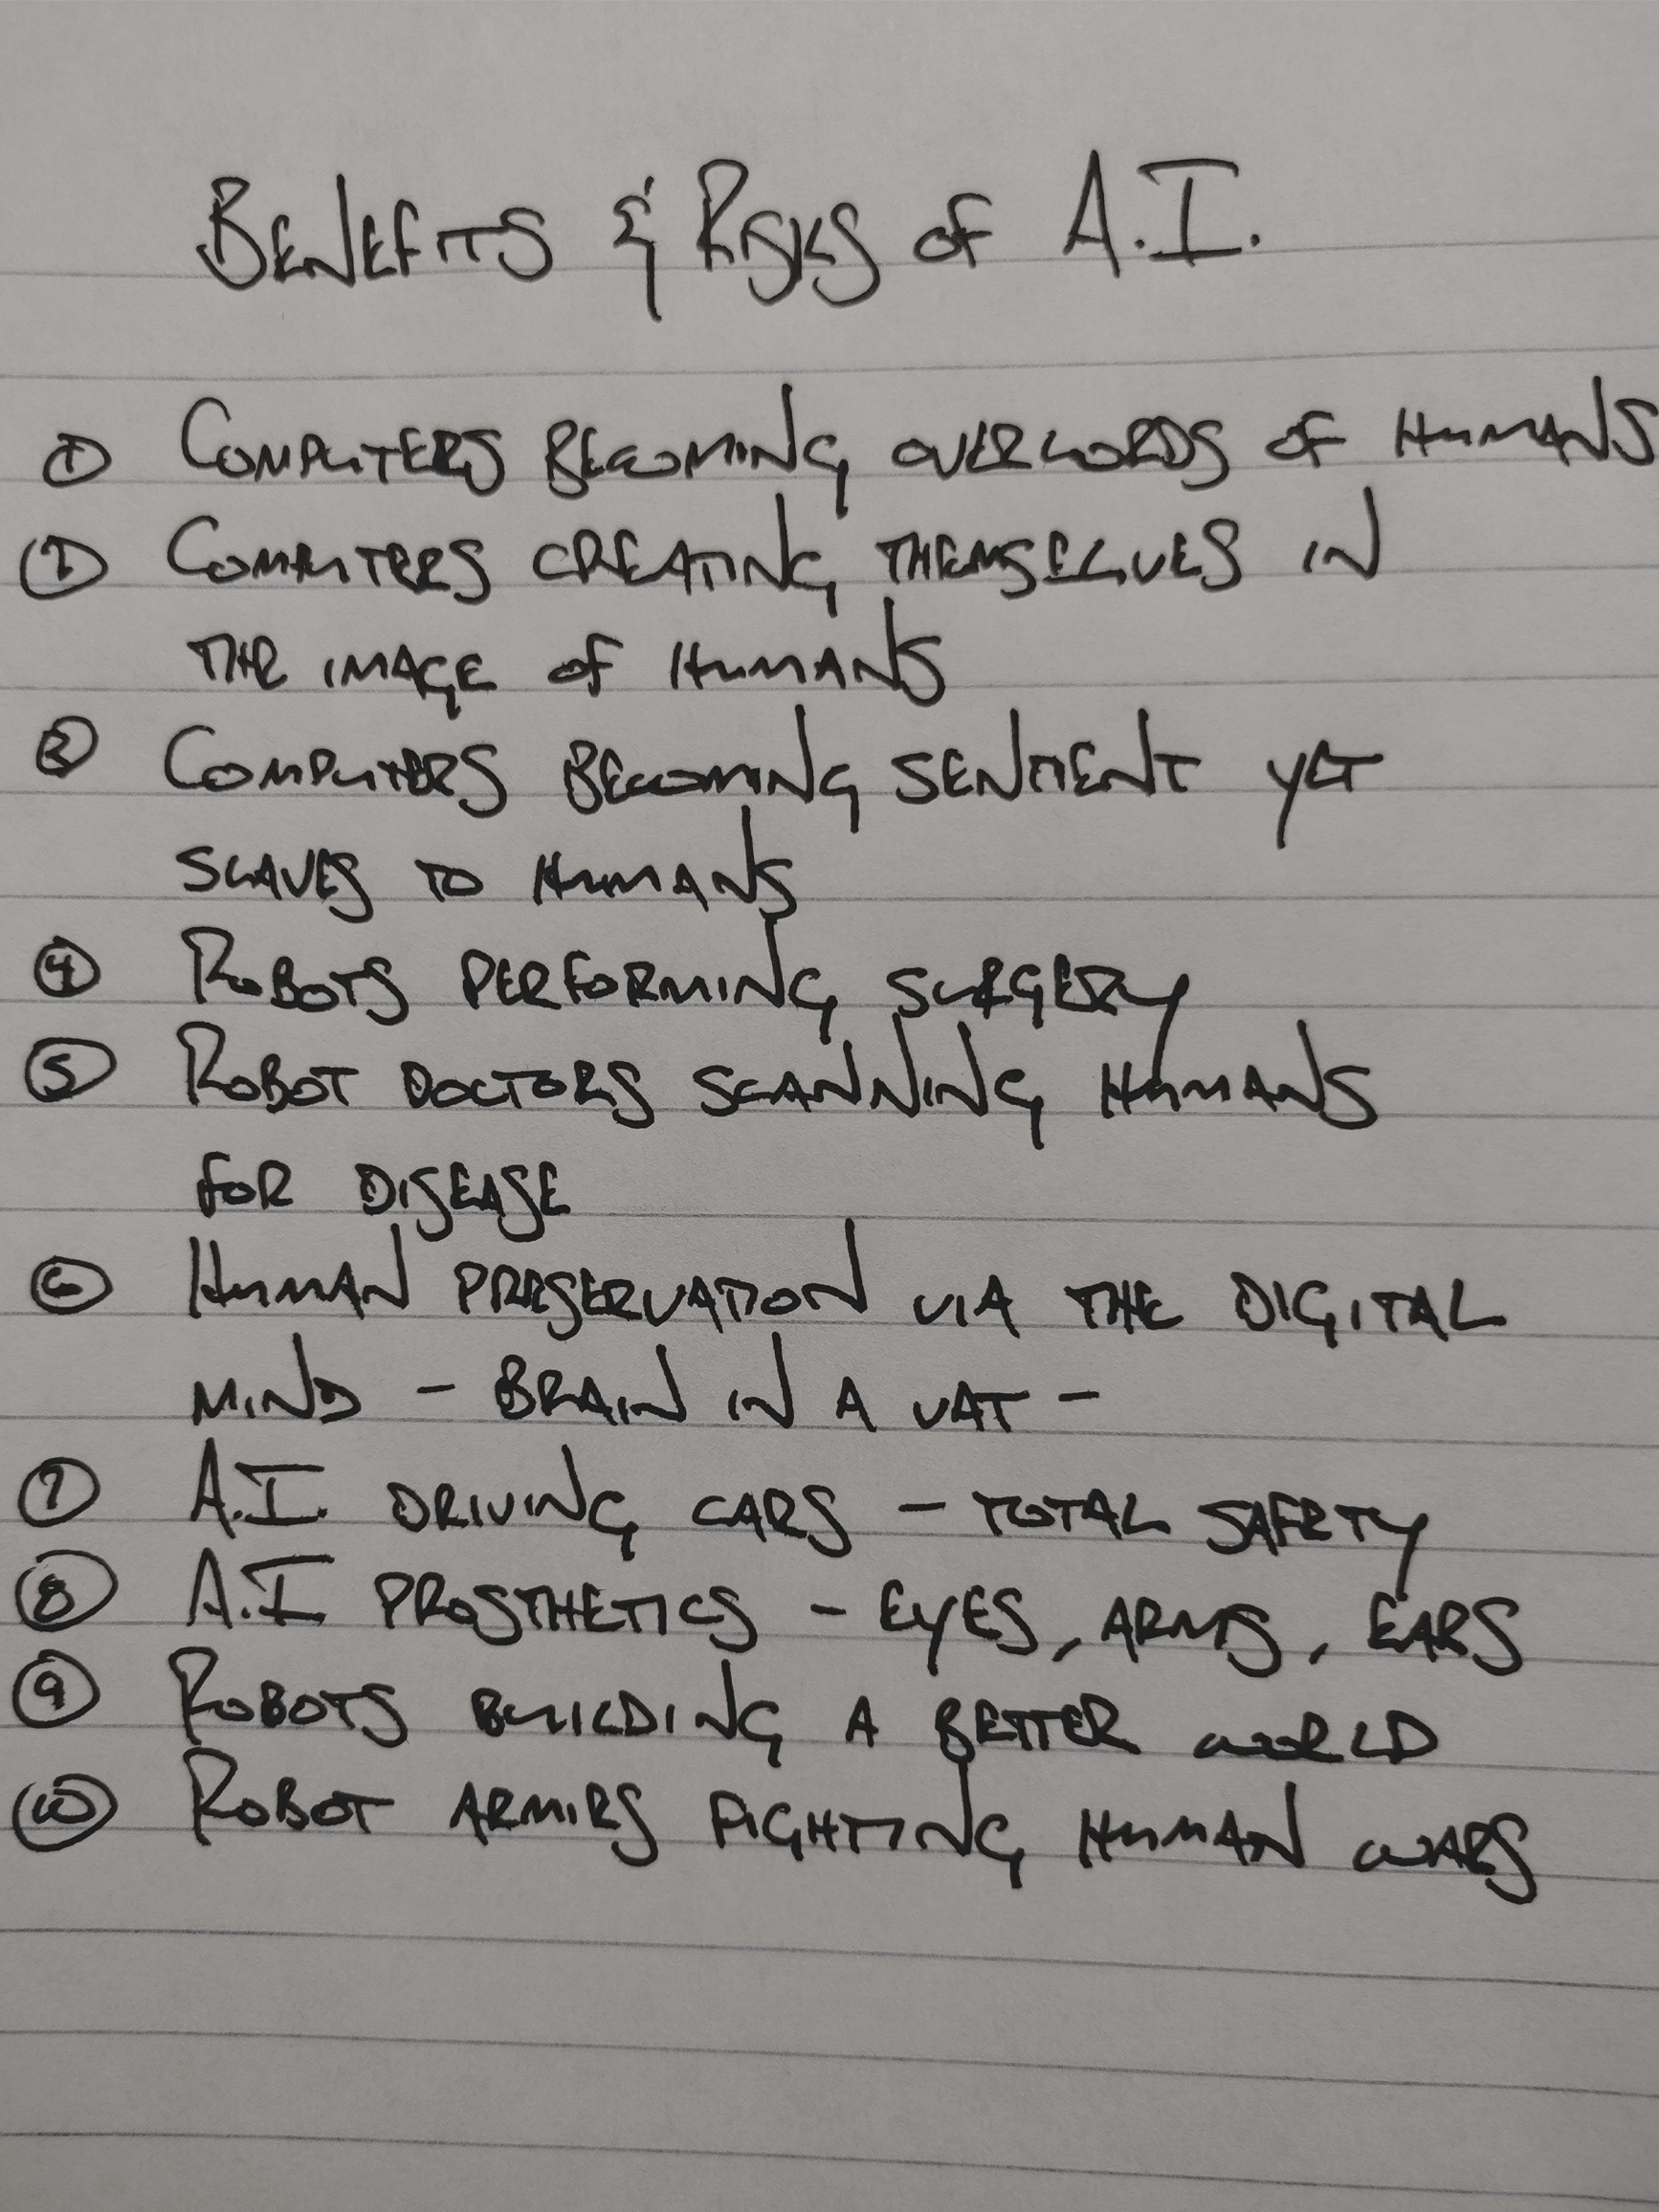 BENEFITS & RISKS OF A.I.
① COMPUTERS BECOMING OVERLORDS OF HUMANS
② COMPUTERS CREATING THEMSELVES IN
THE IMAGE OF HUMANS
③ COMPUTERS BECOMING SENTIENT YET
SLAVES TO HUMANS
④ ROBOTS PERFORMING SURGERY
⑤ ROBOT DOCTORS SCANNING HUMANS
FOR DISEASE
⑥ HUMAN PRESERVATION VIA THE DIGITAL
MIND - BRAIN IN A VAT -
⑦ A.I. DRIVING CARS - TOTAL SAFETY
⑧ A.I PROSTHETICS - EYES, ARMS, EARS
⑨ ROBOTS BUILDING A BETTER WORLD
⑩ ROBOT ARMIES FIGHTING HUMAN WARS